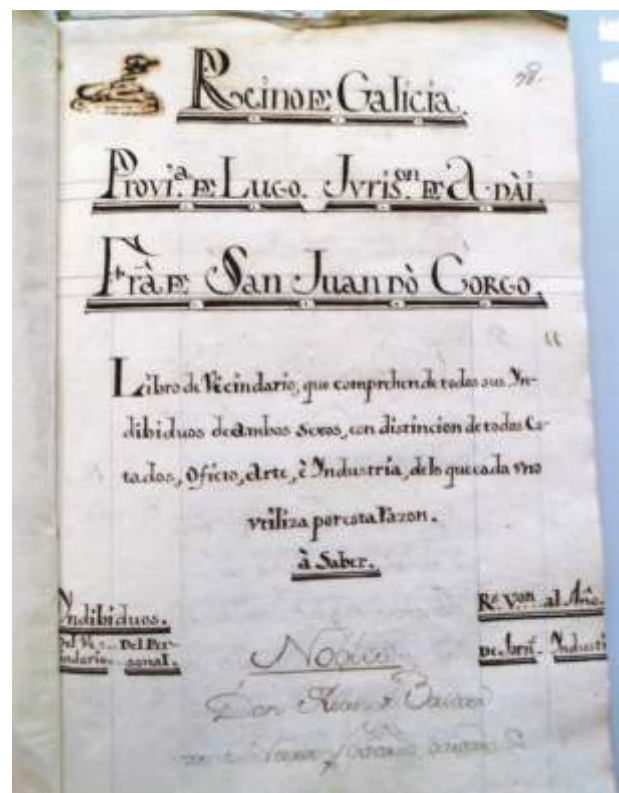 98.
Reino DE Galicia.
Provi.ª DE Lugo. Jvris.on DE Adài.
Frà DE San Juan dò Còrgo.
Libro de Vecindario, que comprehende todos sus Yn-
dibiduos de ambos sexos, con distincion de todos Es-
tados, Oficio, Arte, è Yndustria, de lo que cada vno
vtiliza por esta razon.
à Saber.
Yndibiduos.
Del Ve- Del Per-
indario. sonal.
Rs. Von. al Año.
De Jorn.l Yndustri
Don